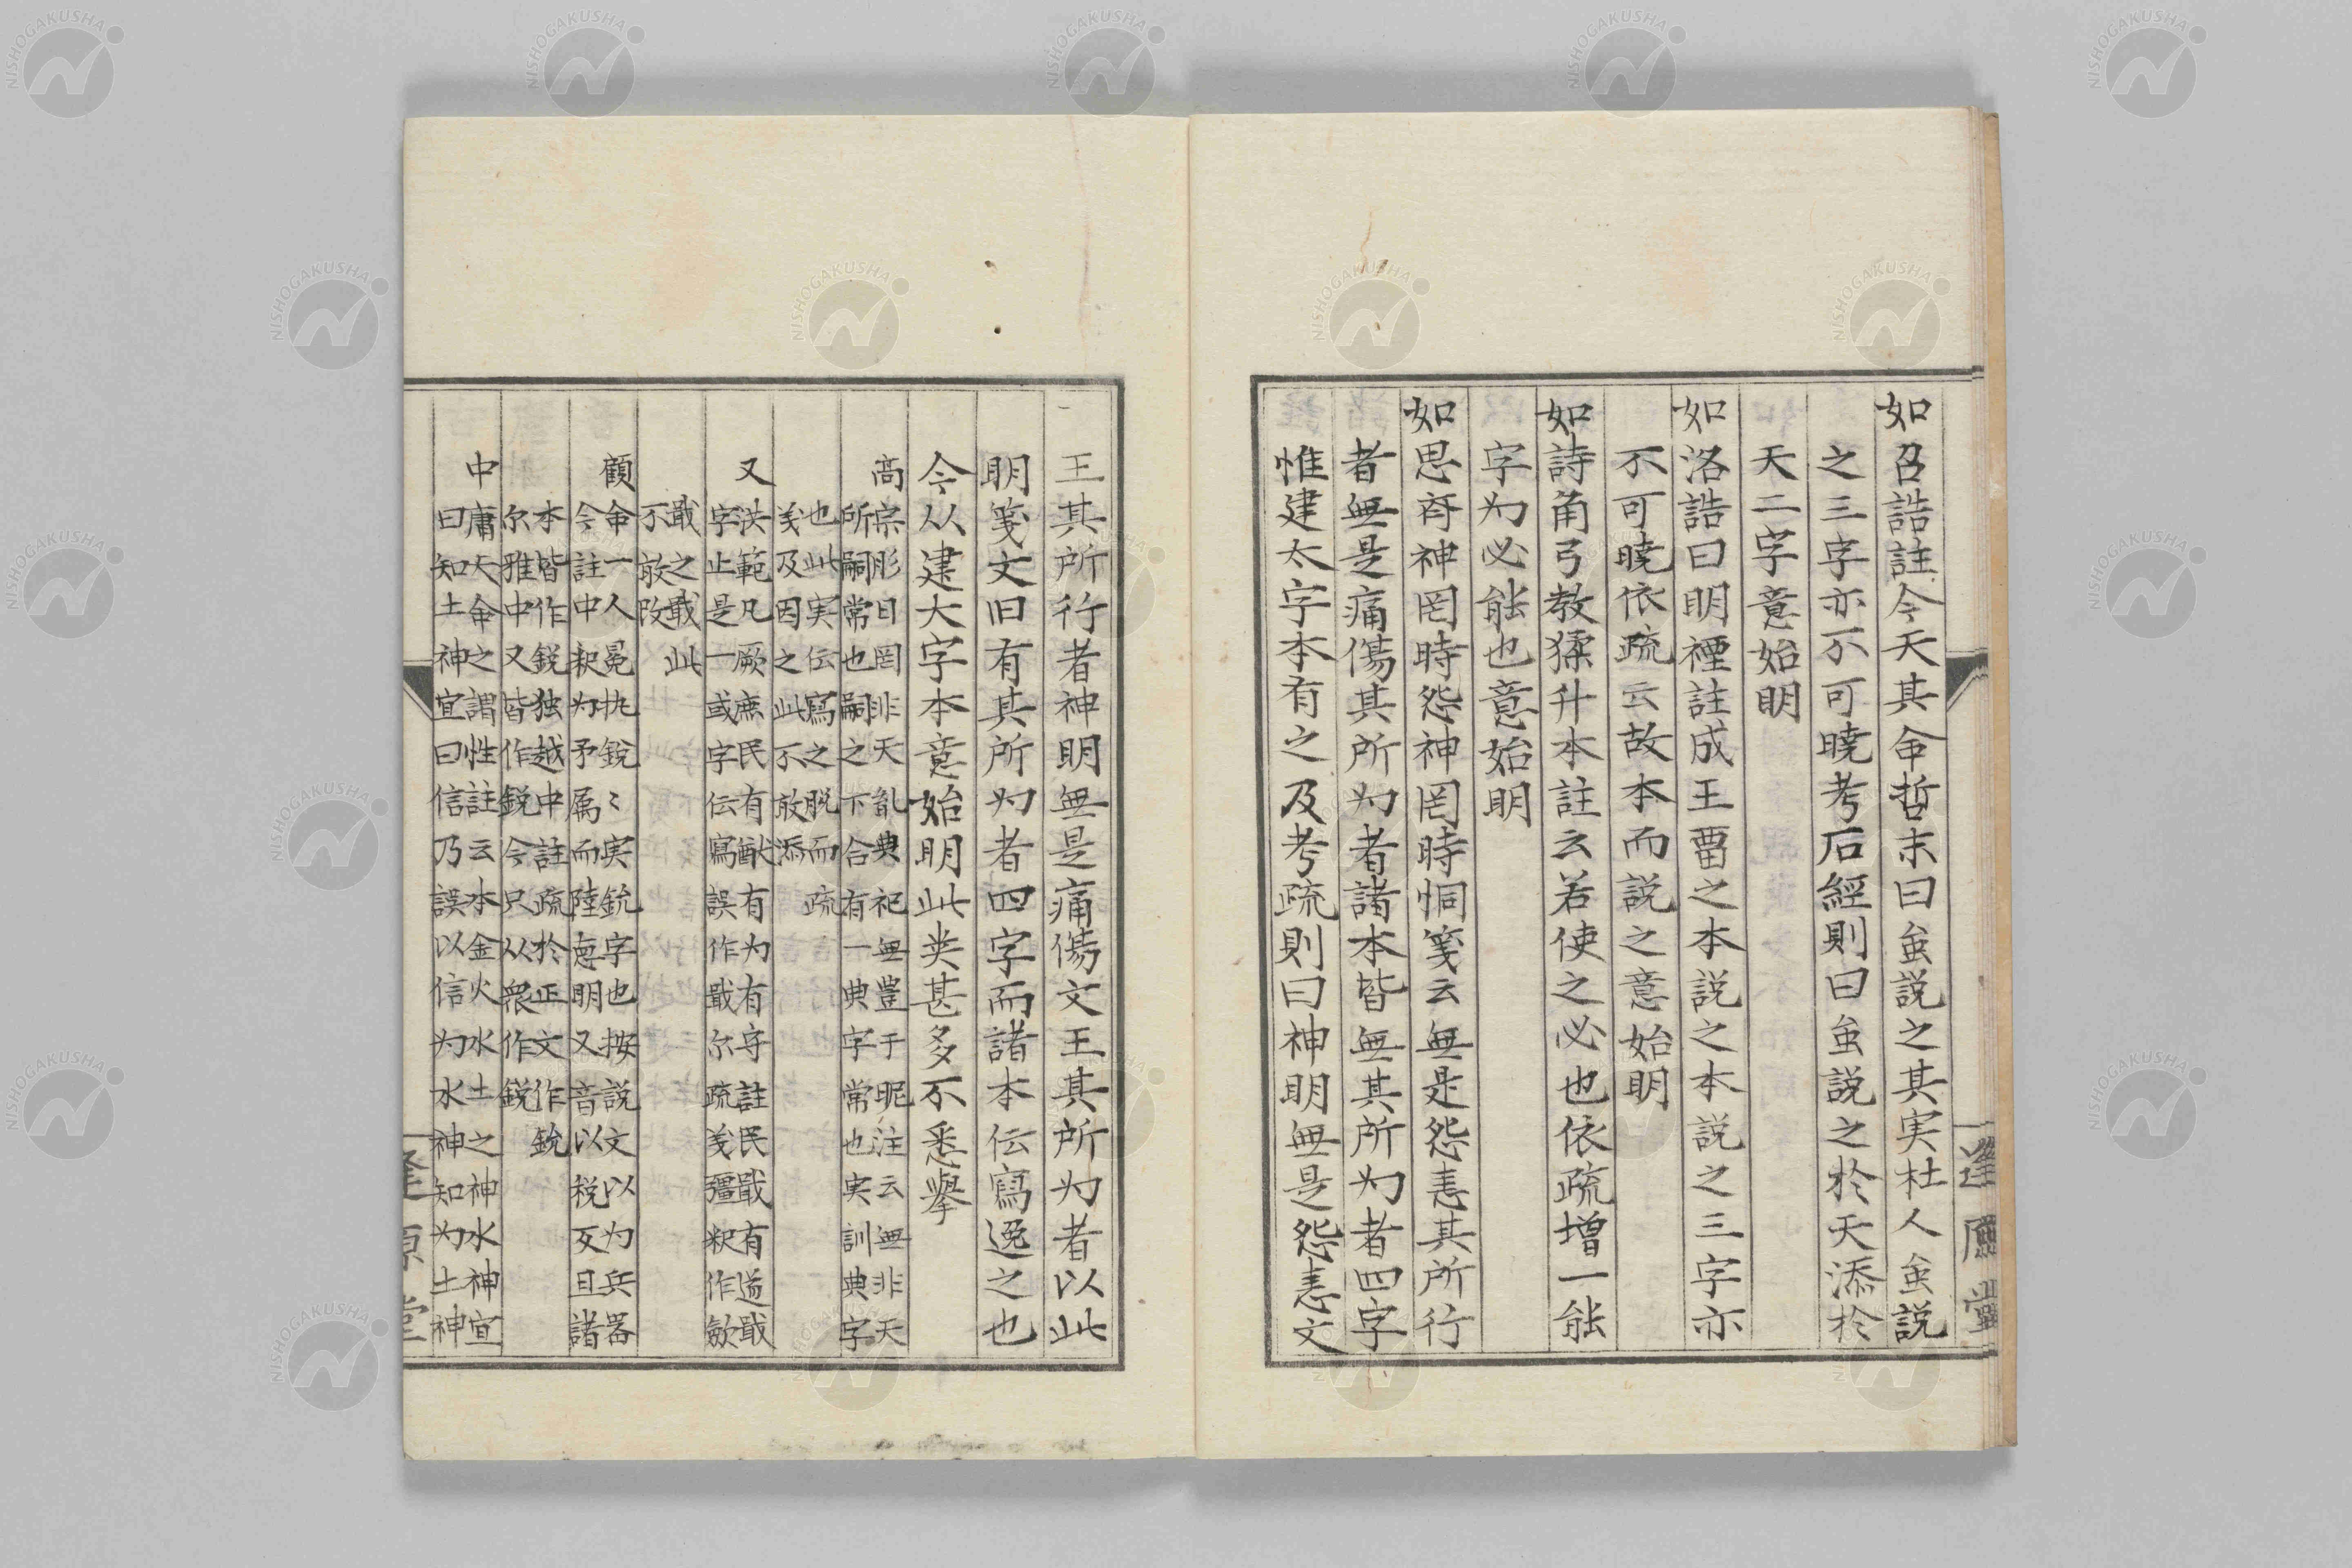 如召誥註今天其命哲末曰虽説之其実杜人虽説
之三字亦不可曉考石經則曰虽説之於天添於
天二字意始明
如洛誥曰明禋註成王畱之本説之本説之三字亦
不可曉依疏云故本而説之意始明
如詩角弓教猱升木註云若使之必也依疏增一能
字为必能也意始明
如思齊神罔時怨神罔時恫箋云無是怨恚其所行
者無是痛傷其所为者諸本皆無其所为者四字
惟建大字本有之及考疏則曰神明無是怨恚文
王其所行者神明無是痛傷文王其所为者以此
明箋文旧有其所为者四字而諸本伝寫逸之也
今从建大字本意始明此类甚多不悉擧
高宗肜日罔非天胤典祀無豊于昵注云無非天
所嗣常也嗣之下合有一典字常也実訓典字
也此実伝寫之脱而疏
義及因之此不敢添
又洪範凡厥庶民有猷有为有守註民戢有道戢
字止是一或字伝寫誤作戢尔疏義彊釈作斂
戢之戢此
不敢改
顧命一人冕执鋭〻実鈗字也按説文以为兵器
今註中釈为矛属而陸德明又音以税反且諸
本皆作鋭独越中註疏於正文作鈗
尔雅中又皆作鋭今只从衆作鋭
中庸天命之謂性註云木金火水土之神水神宜
曰知土神宜曰信乃誤以信为水神知为土神
逢原堂